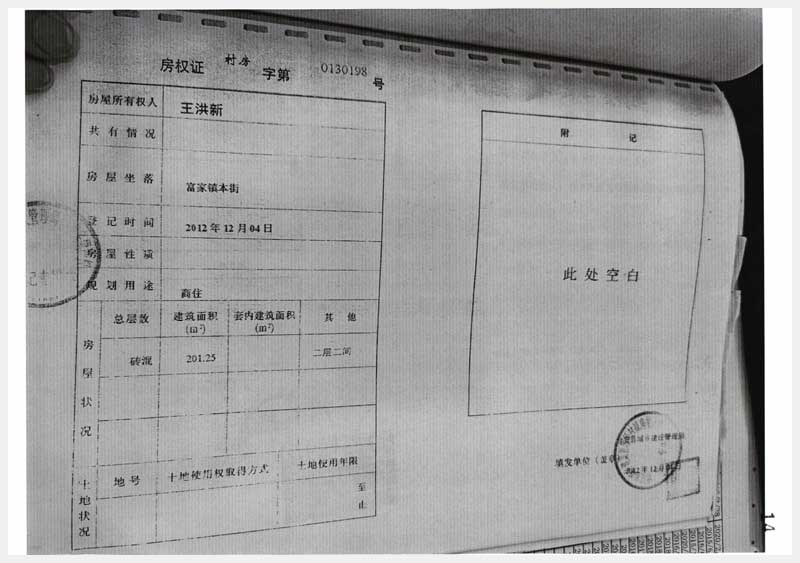 房权证 村房 字第 0130198 号
房屋所有权人 王洪新
共有情况
房屋坐落 富家镇本街
登记时间 2012年12月04日
房屋性质
规划用途 商住
房屋状况
总层数 建筑面积(m²) 套内建筑面积(m²) 其他
砖混 201.25 二层二间
土地状况
地号 土地使用权取得方式 土地使用年限
至
止
附记
此处空白
填发单位（盖章）
14